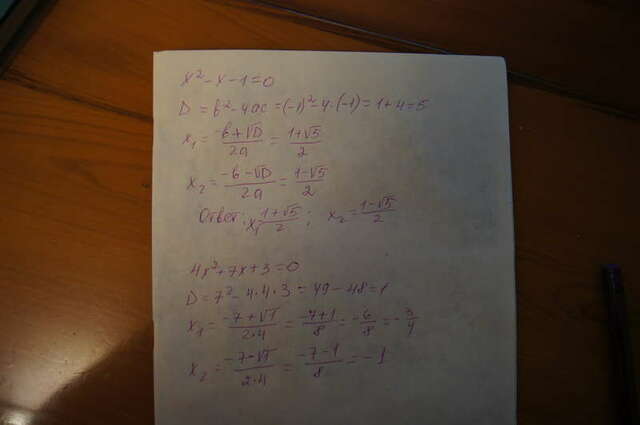 x² - x - 1 = 0
D = b² - 4ac = (-1)² - 4·(-1) = 1 + 4 = 5
x₁ = (-b+√D)/2a = (1+√5)/2
x₂ = (-b-√D)/2a = (1-√5)/2
Ответ: x₁ = (1+√5)/2; x₂ = (1-√5)/2
4x² + 7x + 3 = 0
D = 7² - 4·4·3 = 49 - 48 = 1
x₁ = (-7+√1)/2·4 = (-7+1)/8 = -6/8 = -3/4
x₂ = (-7-√1)/2·4 = (-7-1)/8 = -1